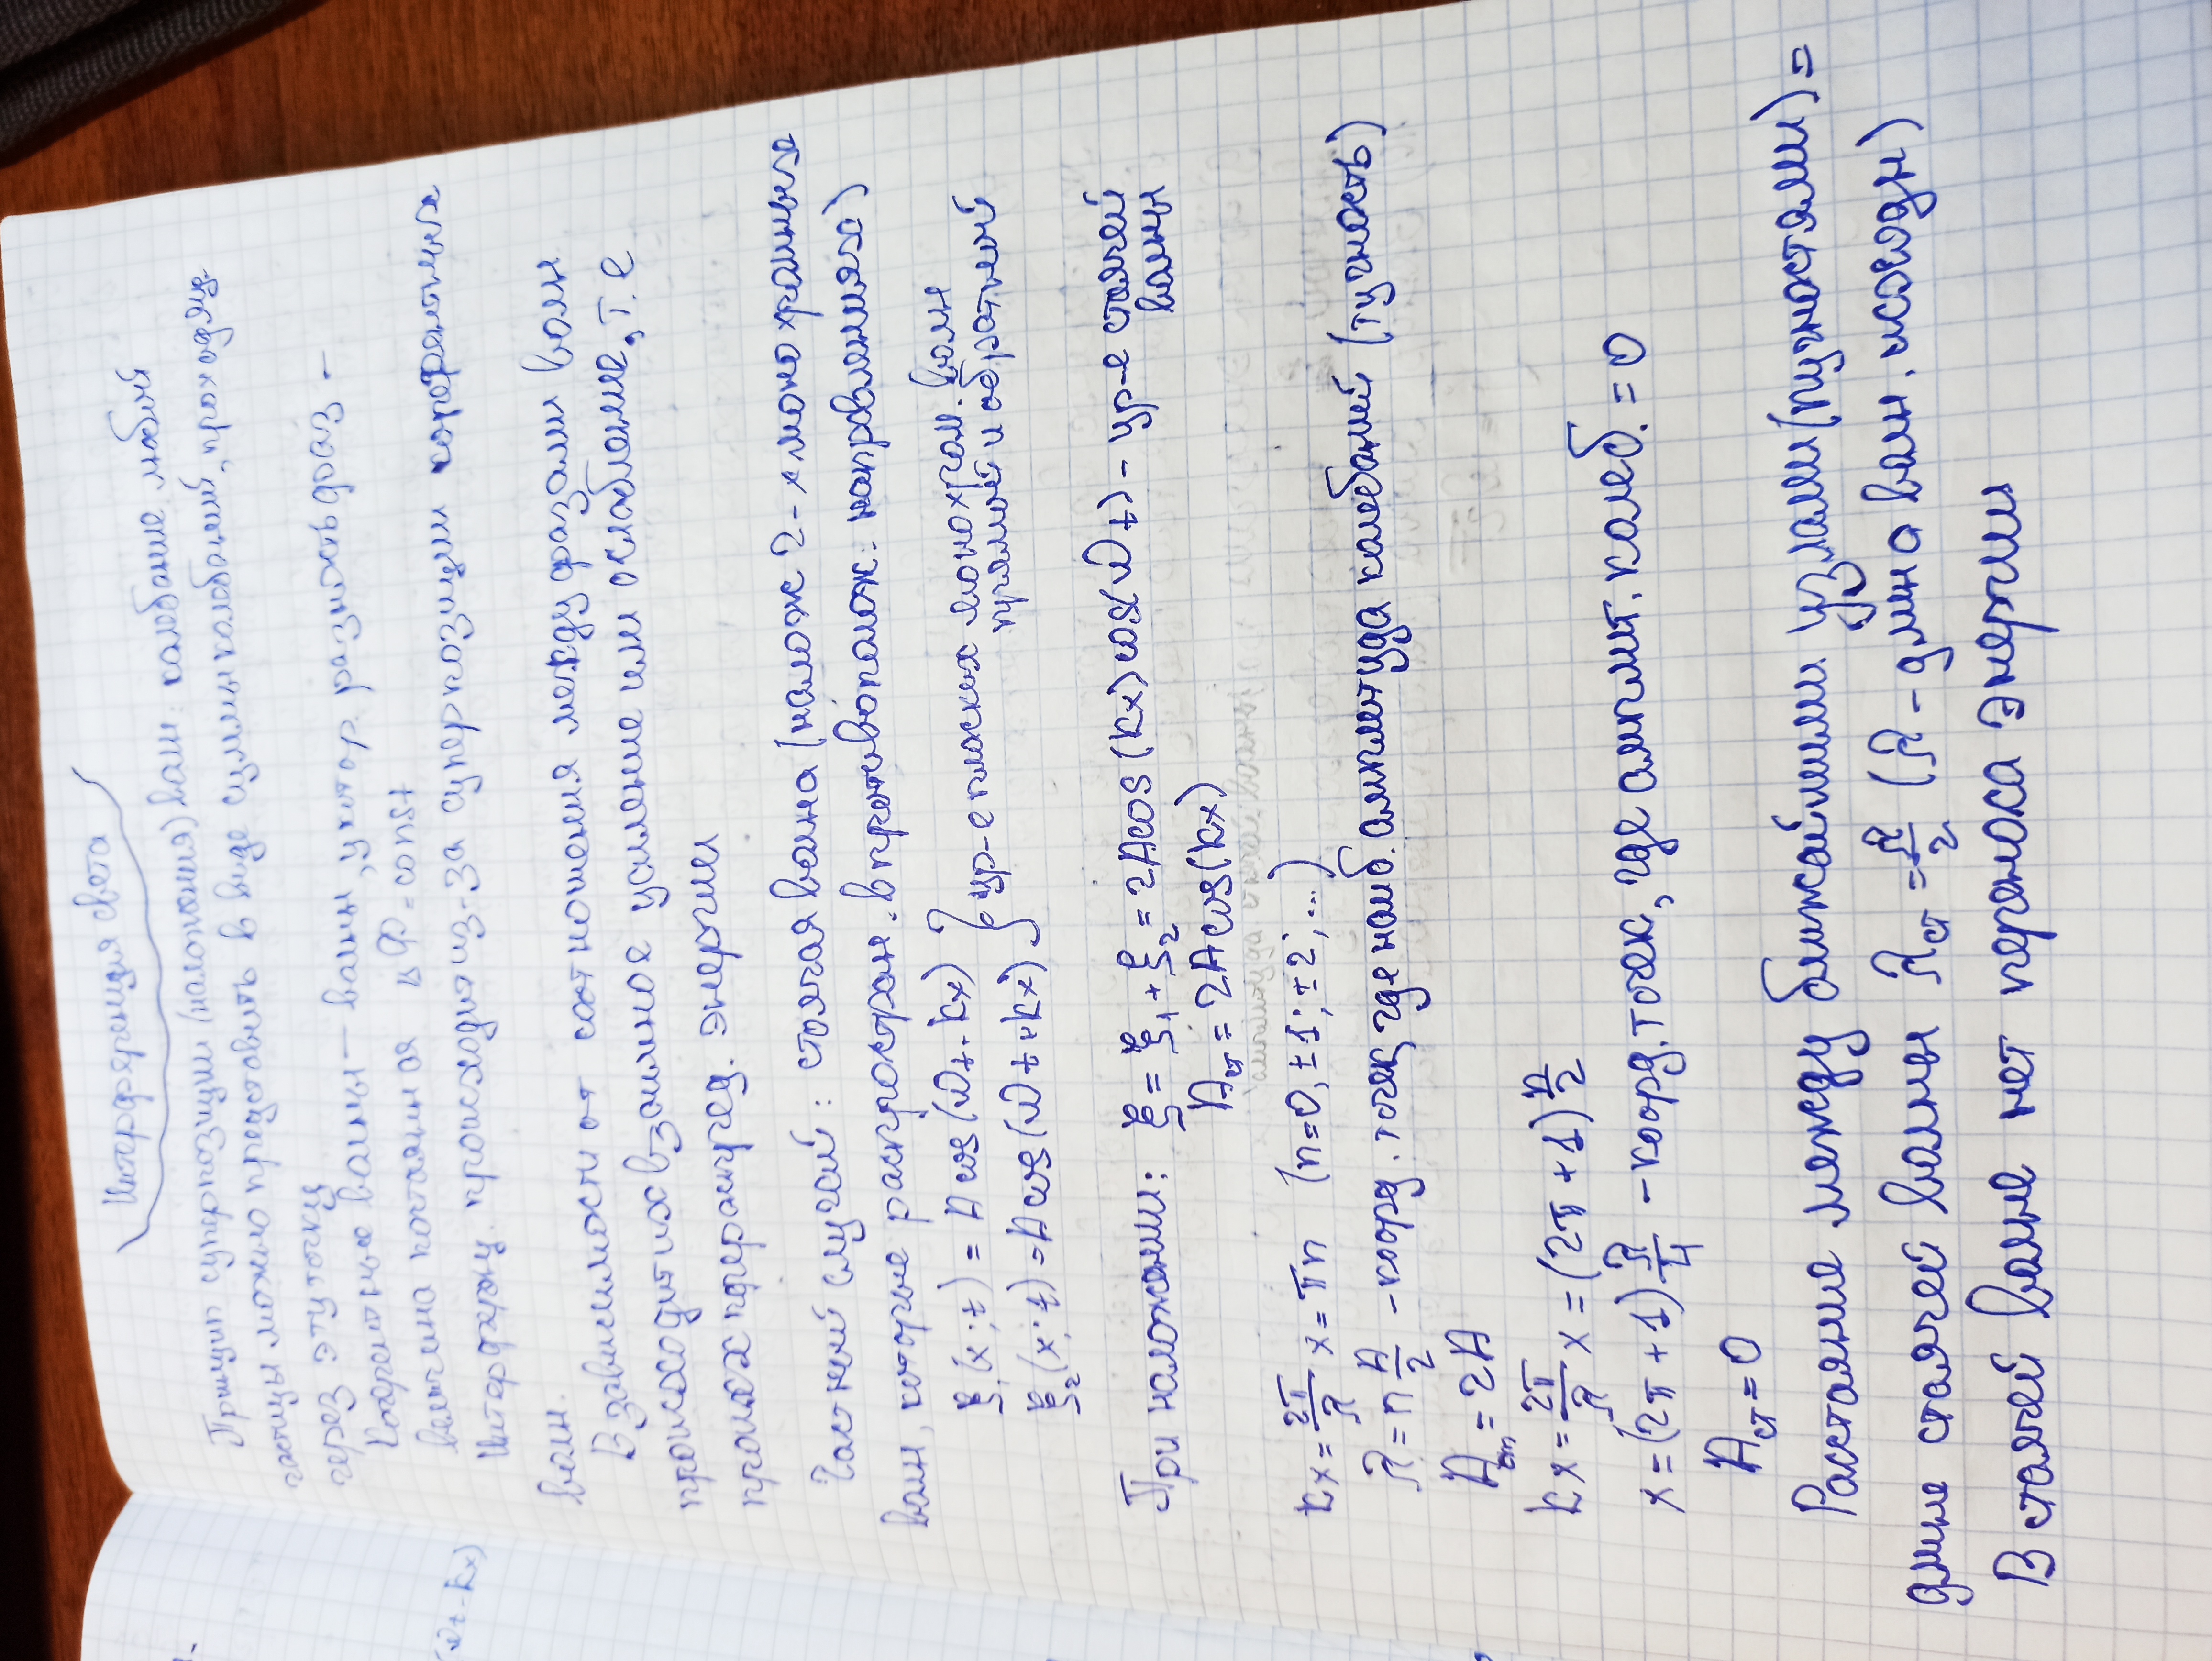 Интерференция света
Принцип суперпозиции (наложения) волн: колебание любой
частицы можно представить в виде суммы колебаний, проходящ.
через эту точку
Когерентные волны – волны, у котор. разность фаз –
величина постоянная ΔФ = const
(ωt - kx)
Интерференц. происходит из-за суперпозиции когерентных
волн.
В зависимости от соотношения между фазами волн
происходит их взаимное усиление или ослабление, т.е
происх перераспред. энергии
Частный случай: стоячая волна (налож 2-х монохромных
волн, которые распростран. в противополож. направлениях)
ξ₁(x;t) = A cos(ωt - kx) } ур-е плоских монохром. волн
ξ₂(x;t) = A cos(ωt + kx) прямой и обратной
При наложении: ξ = ξ₁ + ξ₂ = 2A cos(kx) cos(ωt) - ур-е стоячей
волны
Aст = 2A cos(kx)
амплитуда стоячей волны
kx = 2π/λ x = πn (n=0, ±1; ±2; ...)
λ = n λ/2 - коорд. точек, где наиб. амплитуда колебаний (пучность)
Aст = 2A
kx = 2π/λ x = (2π + 1) π/2
x = (2π + 1) λ/4 - коорд. точек, где амплит. колеб. = 0
Aст = 0
Расстояние между ближайшими узлами (пучностями) =
длине стоячей волны λст = λ/2 (λ - длина волн. исходн)
В стоячей волне нет переноса энергии